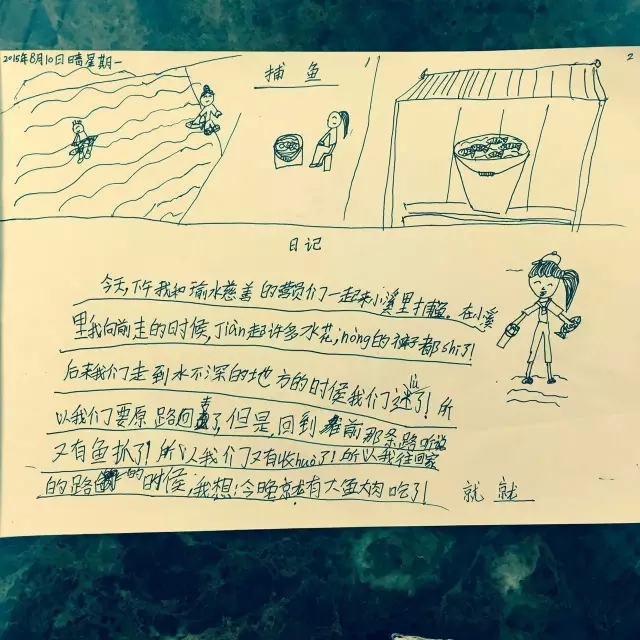 2015年8月10日晴星期一
捕鱼
1
2
日记
今天下午我和瑜水慈善的营员们一起来小溪里打 在小溪
里我向前走的时候,jiàn起许多水花,nòng的裤子都shī了!
后来我们走到水不深的地方的时候我们迷lù了!所
以我们要原路回去了,但是,回到前那条路听说
又有鱼抓了!所以我们又有收huò了!所以我往回家
的路的时候,我想:今晚就有大鱼大肉吃了!
就就